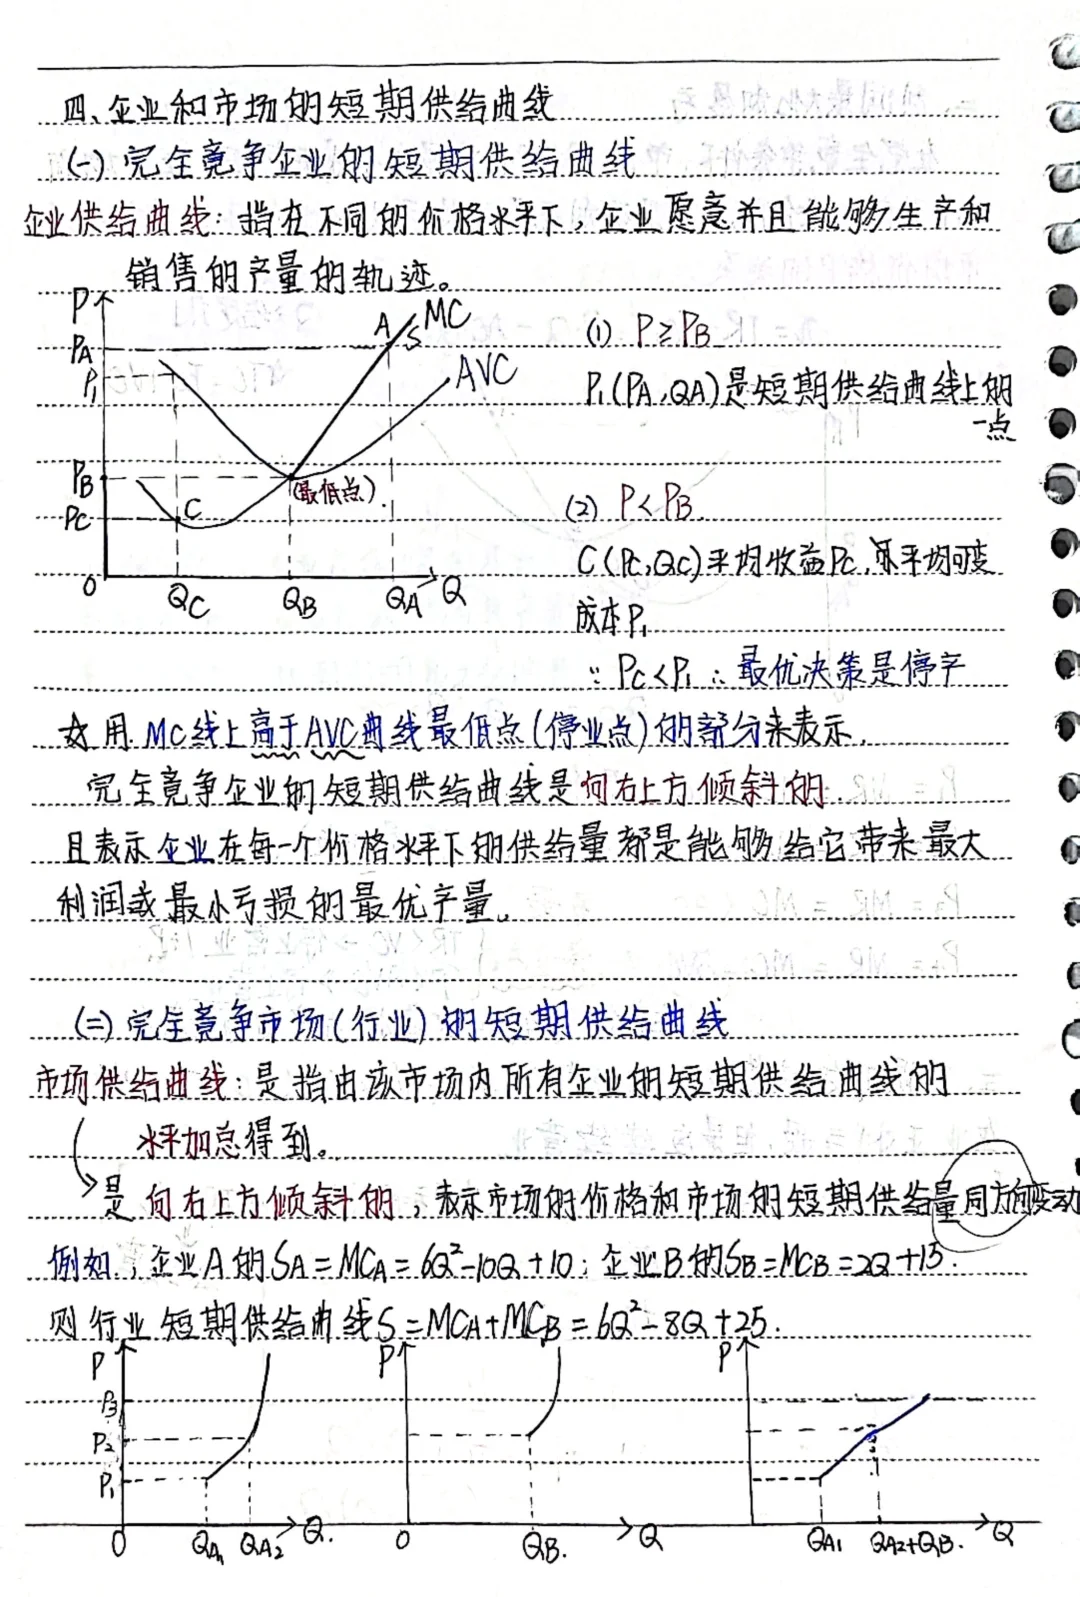 四、企业和市场的短期供给曲线
(一) 完全竞争企业的短期供给曲线
企业供给曲线：指在不同的价格水平下，企业愿意并且能够生产和
销售的产量的轨迹。
P
PA
P₁
PB
PC
A
S
MC
AVC
(最低点)
C
O
QC
QB
QA
Q
(1) P≥PB
P₁(PA,QA)是短期供给曲线上的
一点
(2) P<PB
C(Pc,Qc)平均收益Pc,平均可变
成本P₁
∵Pc<P₁∴最优决策是停产
☆用MC线上高于AVC曲线最低点(停业点)的部分来表示.
完全竞争企业的短期供给曲线是向右上方倾斜的
且表示企业在每一个价格水平下的供给量都是能够给它带来最大
利润或最小亏损的最优产量.
(二) 完全竞争市场(行业)的短期供给曲线
市场供给曲线：是指由该市场内所有企业的短期供给曲线的
水平加总得到。
是向右上方倾斜的，表示市场的价格和市场的短期供给量同方向变动
例如，企业A的SA=MCA=6Q²-10Q+10；企业B的SB=MCB=2Q+15.
则行业短期供给曲线S=MCA+MCB=6Q²-8Q+25.
P
P3
P2
P1
O
QA1
QA2
Q.
P
O
QB.
Q
P
QA1
QA2+QB.
Q